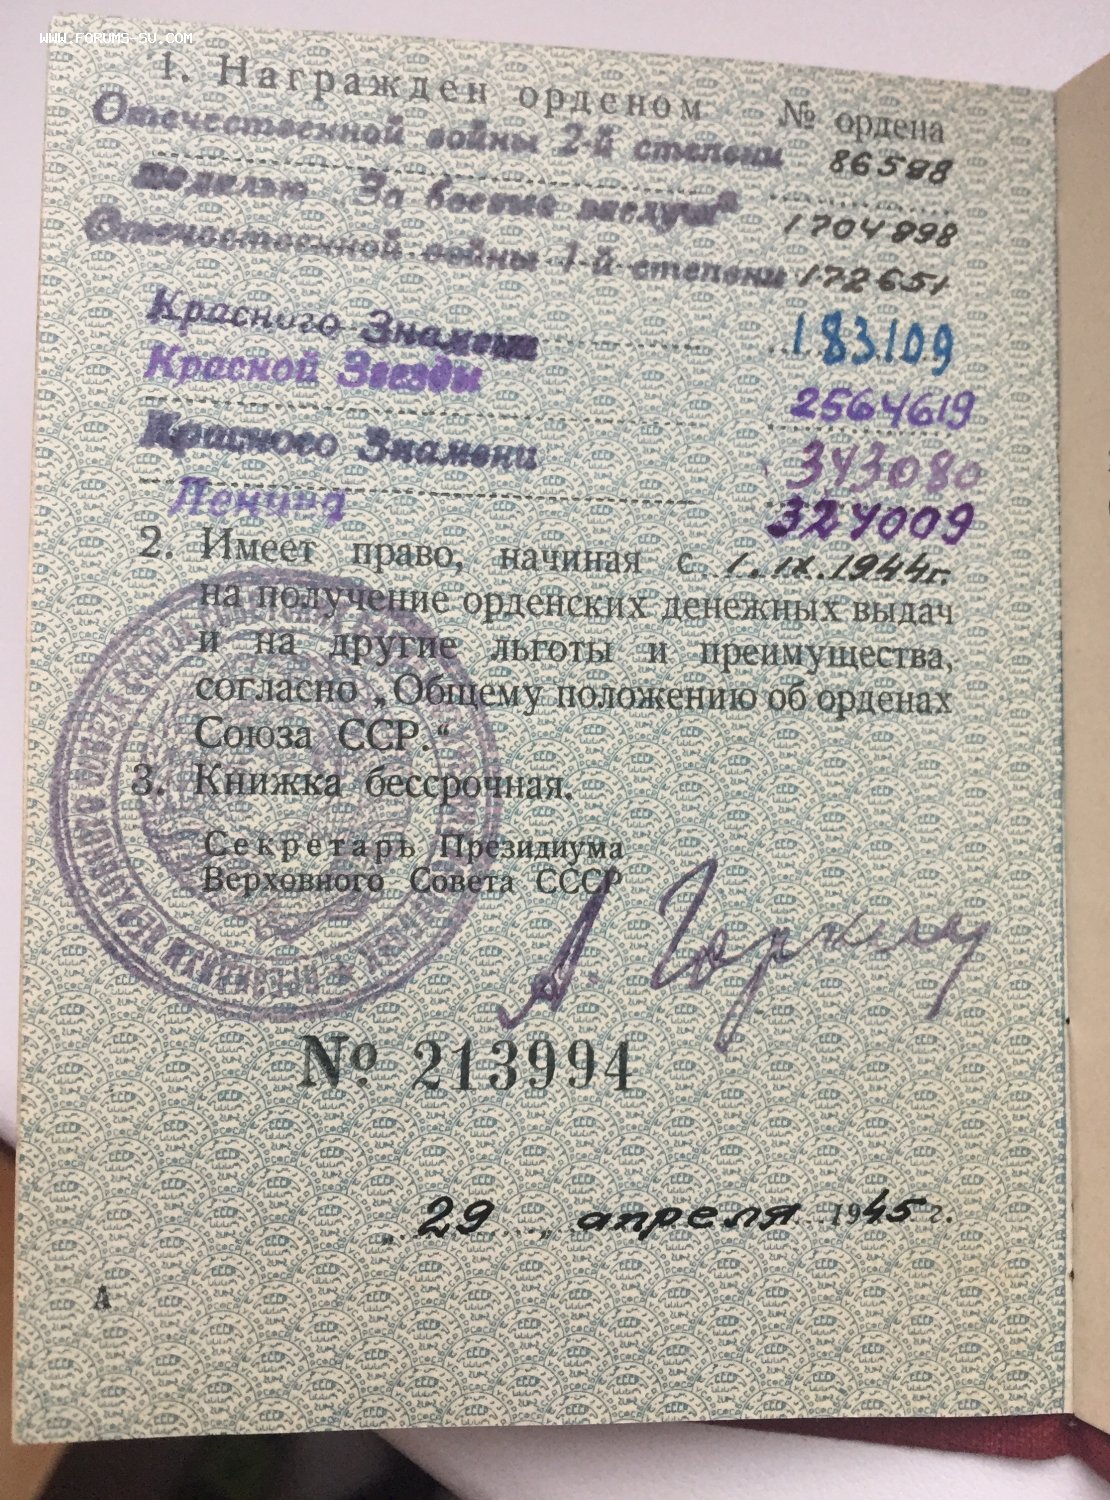 WWW.FORUMS-SU.COM
1. Награжден орденом № ордена
Отечественной войны 2-й степени 86598
медалью „За боевые заслуги" 1704898
Отечественной войны 1-й степени 172651
Красного Знамени 183109
Красной Звезды 2564619
Красного Знамени 343080
Ленина 324009
2. Имеет право, начиная с 1.IX.1944г.
на получение орденских денежных выдач
и на другие льготы и преимущества,
согласно „Общему положению об орденах
Союза ССР.“
3. Книжка бессрочная.
Секретарь Президиума
Верховного Совета СССР
А. Горкин
№ 213994
„29„ апреля 1945 г.
А